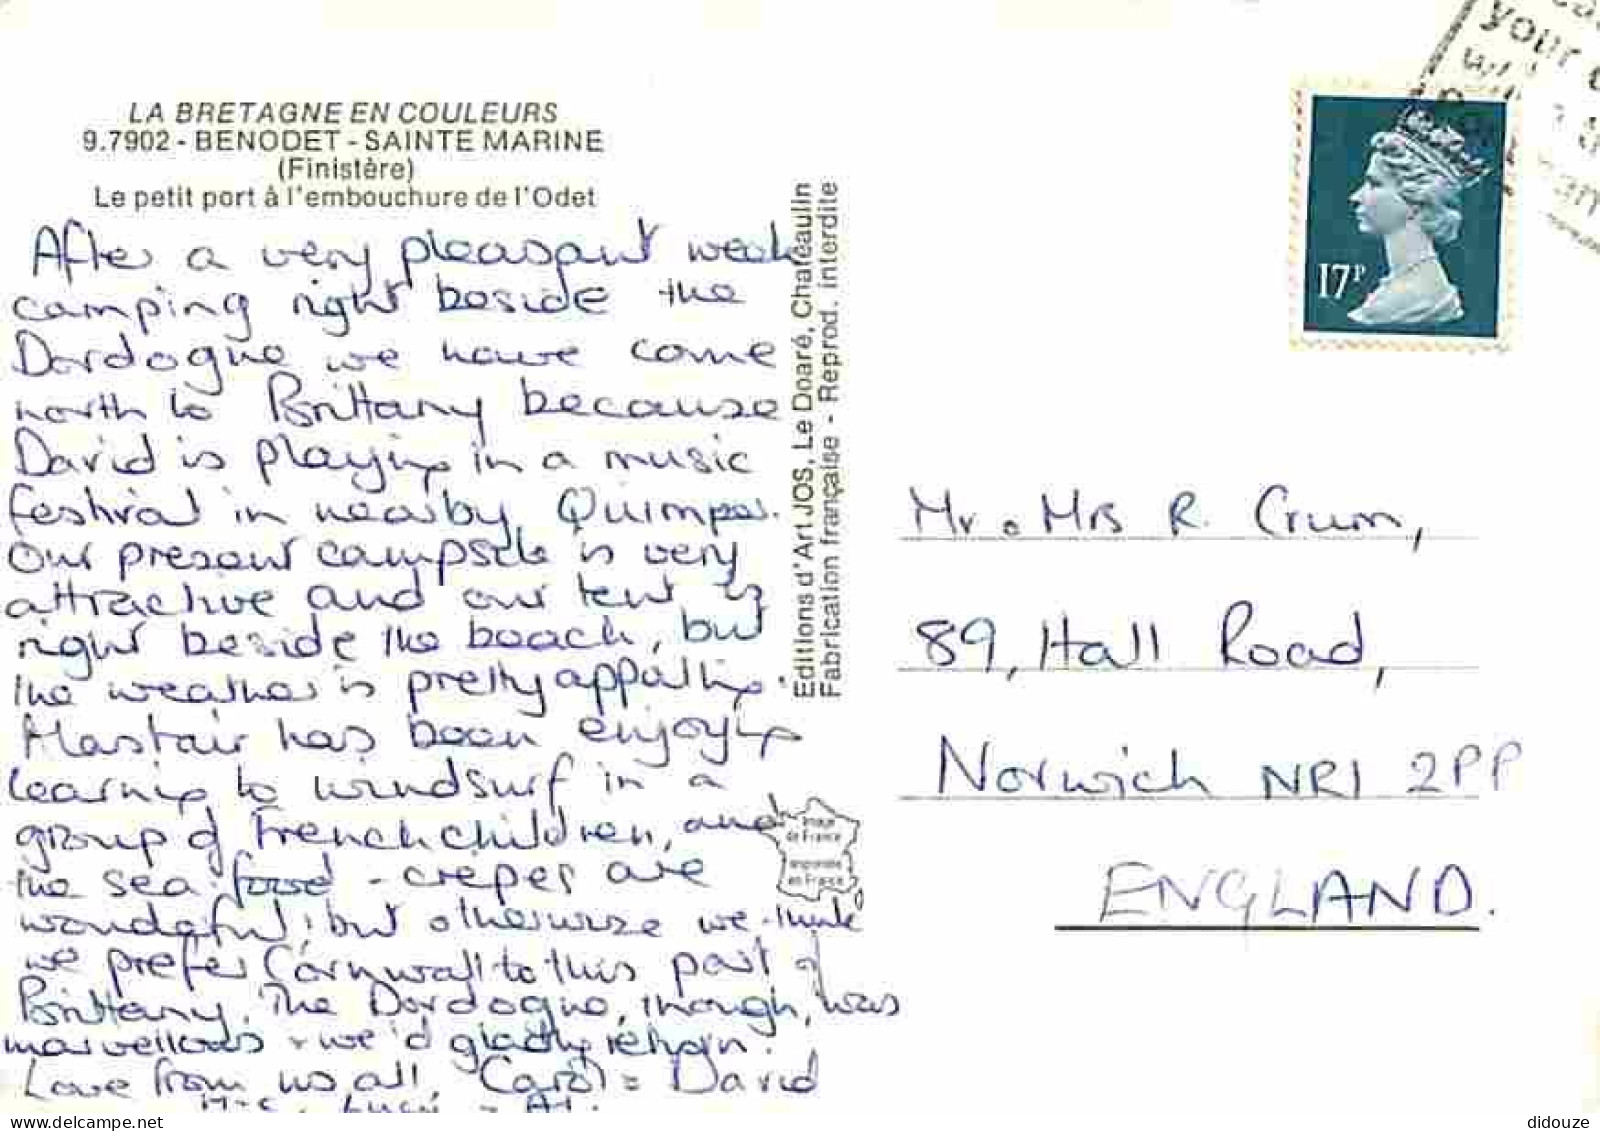 LA BRETAGNE EN COULEURS
9.7902 - BENODET - SAINTE MARINE
(Finistère)
Le petit port à l'embouchure de l'Odet
After a very pleasant week
camping right beside the
Dordogne we have come
north to Brittany because
David is playing in a music
festival in nearby Quimper.
Our present campsite is very
attractive and our tent is
right beside the beach, but
the weather is pretty appalling.
Alastair has been enjoying
learning to windsurf in a
group of French children, and
the sea food - crepes are
wonderful, but otherwise we think
we prefer Cornwall to this part of
Brittany. The Dordogne, though, was
marvellous - we'd gladly return.
Love from us all, Carol = David
Editions d'Art JOS, Le Doaré, Châteaulin
Fabrication française - Reprod. interdite
Image
de France
imprimée
en France
your
17P
Mr. Mrs R. Crum,
89, Hall Road,
Norwich NR1 2PP
ENGLAND.
didouze